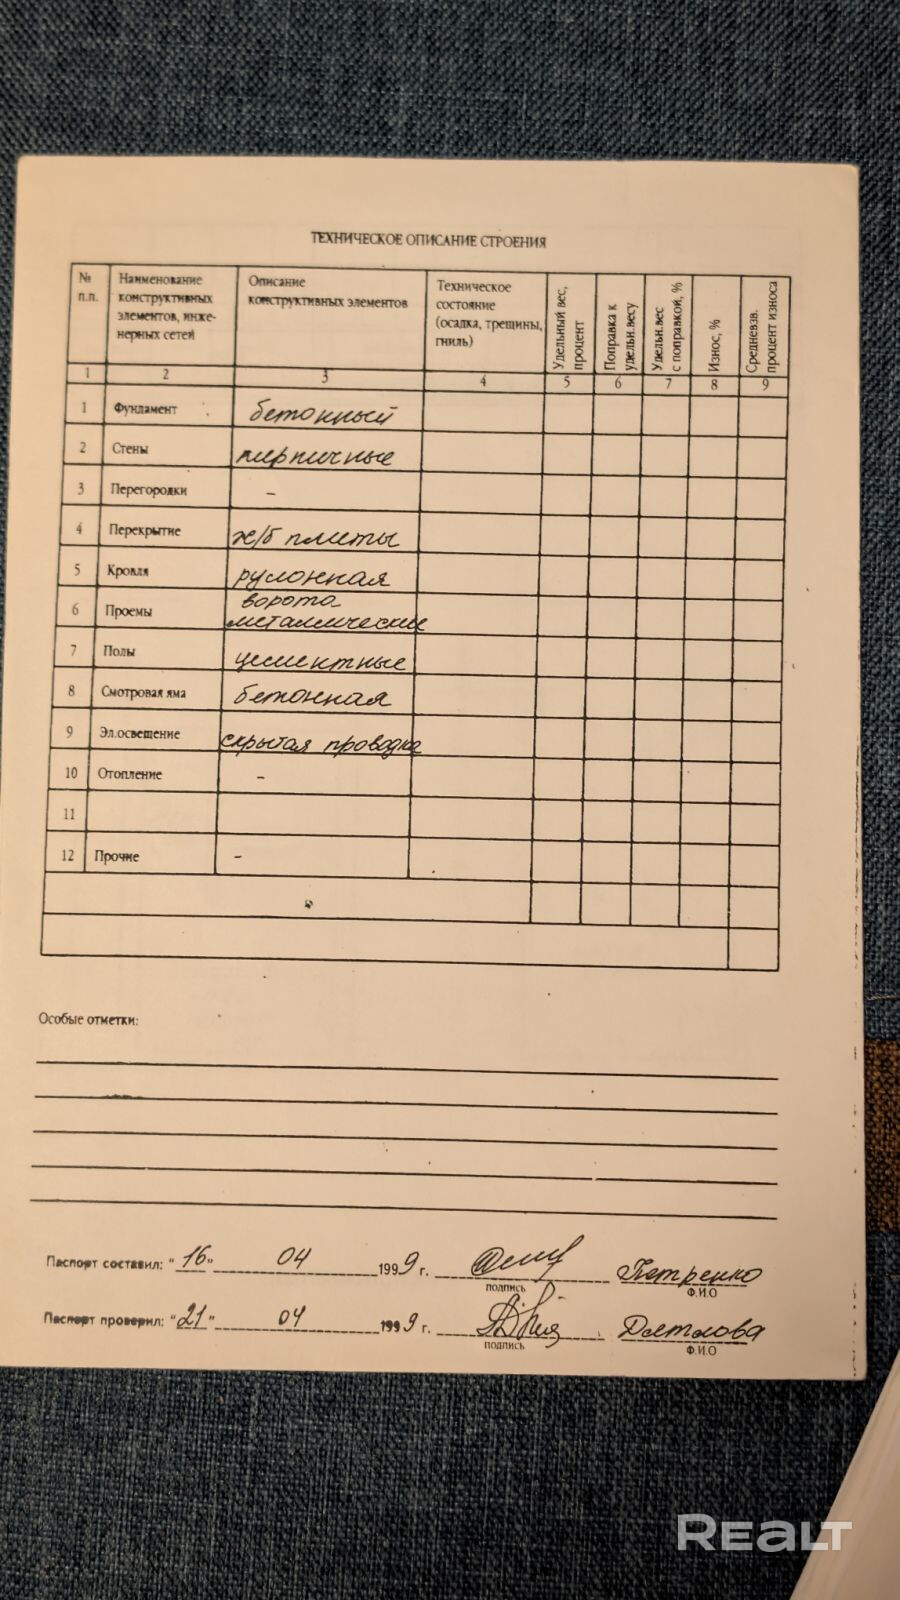 ТЕХНИЧЕСКОЕ ОПИСАНИЕ СТРОЕНИЯ
№ п.п.
Наименование конструктивных элементов, инже-нерных сетей
Описание конструктивных элементов
Техническое состояние (осадка, трещины, гниль)
Удельный вес, процент
Поправка к удельн.весу
Удельн.вес с поправкой, %
Износ, %
Средневзв. процент износа
1 2 3 4 5 6 7 8 9
1 Фундамент бетонный
2 Стены кирпичные
3 Перегородки -
4 Перекрытие ж/б плиты
5 Кровля рулонная
6 Проемы ворота металлические
7 Полы цементные
8 Смотровая яма бетонная
9 Эл.освещение скрытая проводка
10 Отопление -
11
12 Прочие -
Особые отметки:
Паспорт составил: "16" 04 1999 г. Петренко
подпись Ф.И.О
Паспорт проверил: "21" 04 1999 г. Дятлова
подпись Ф.И.О
REALT